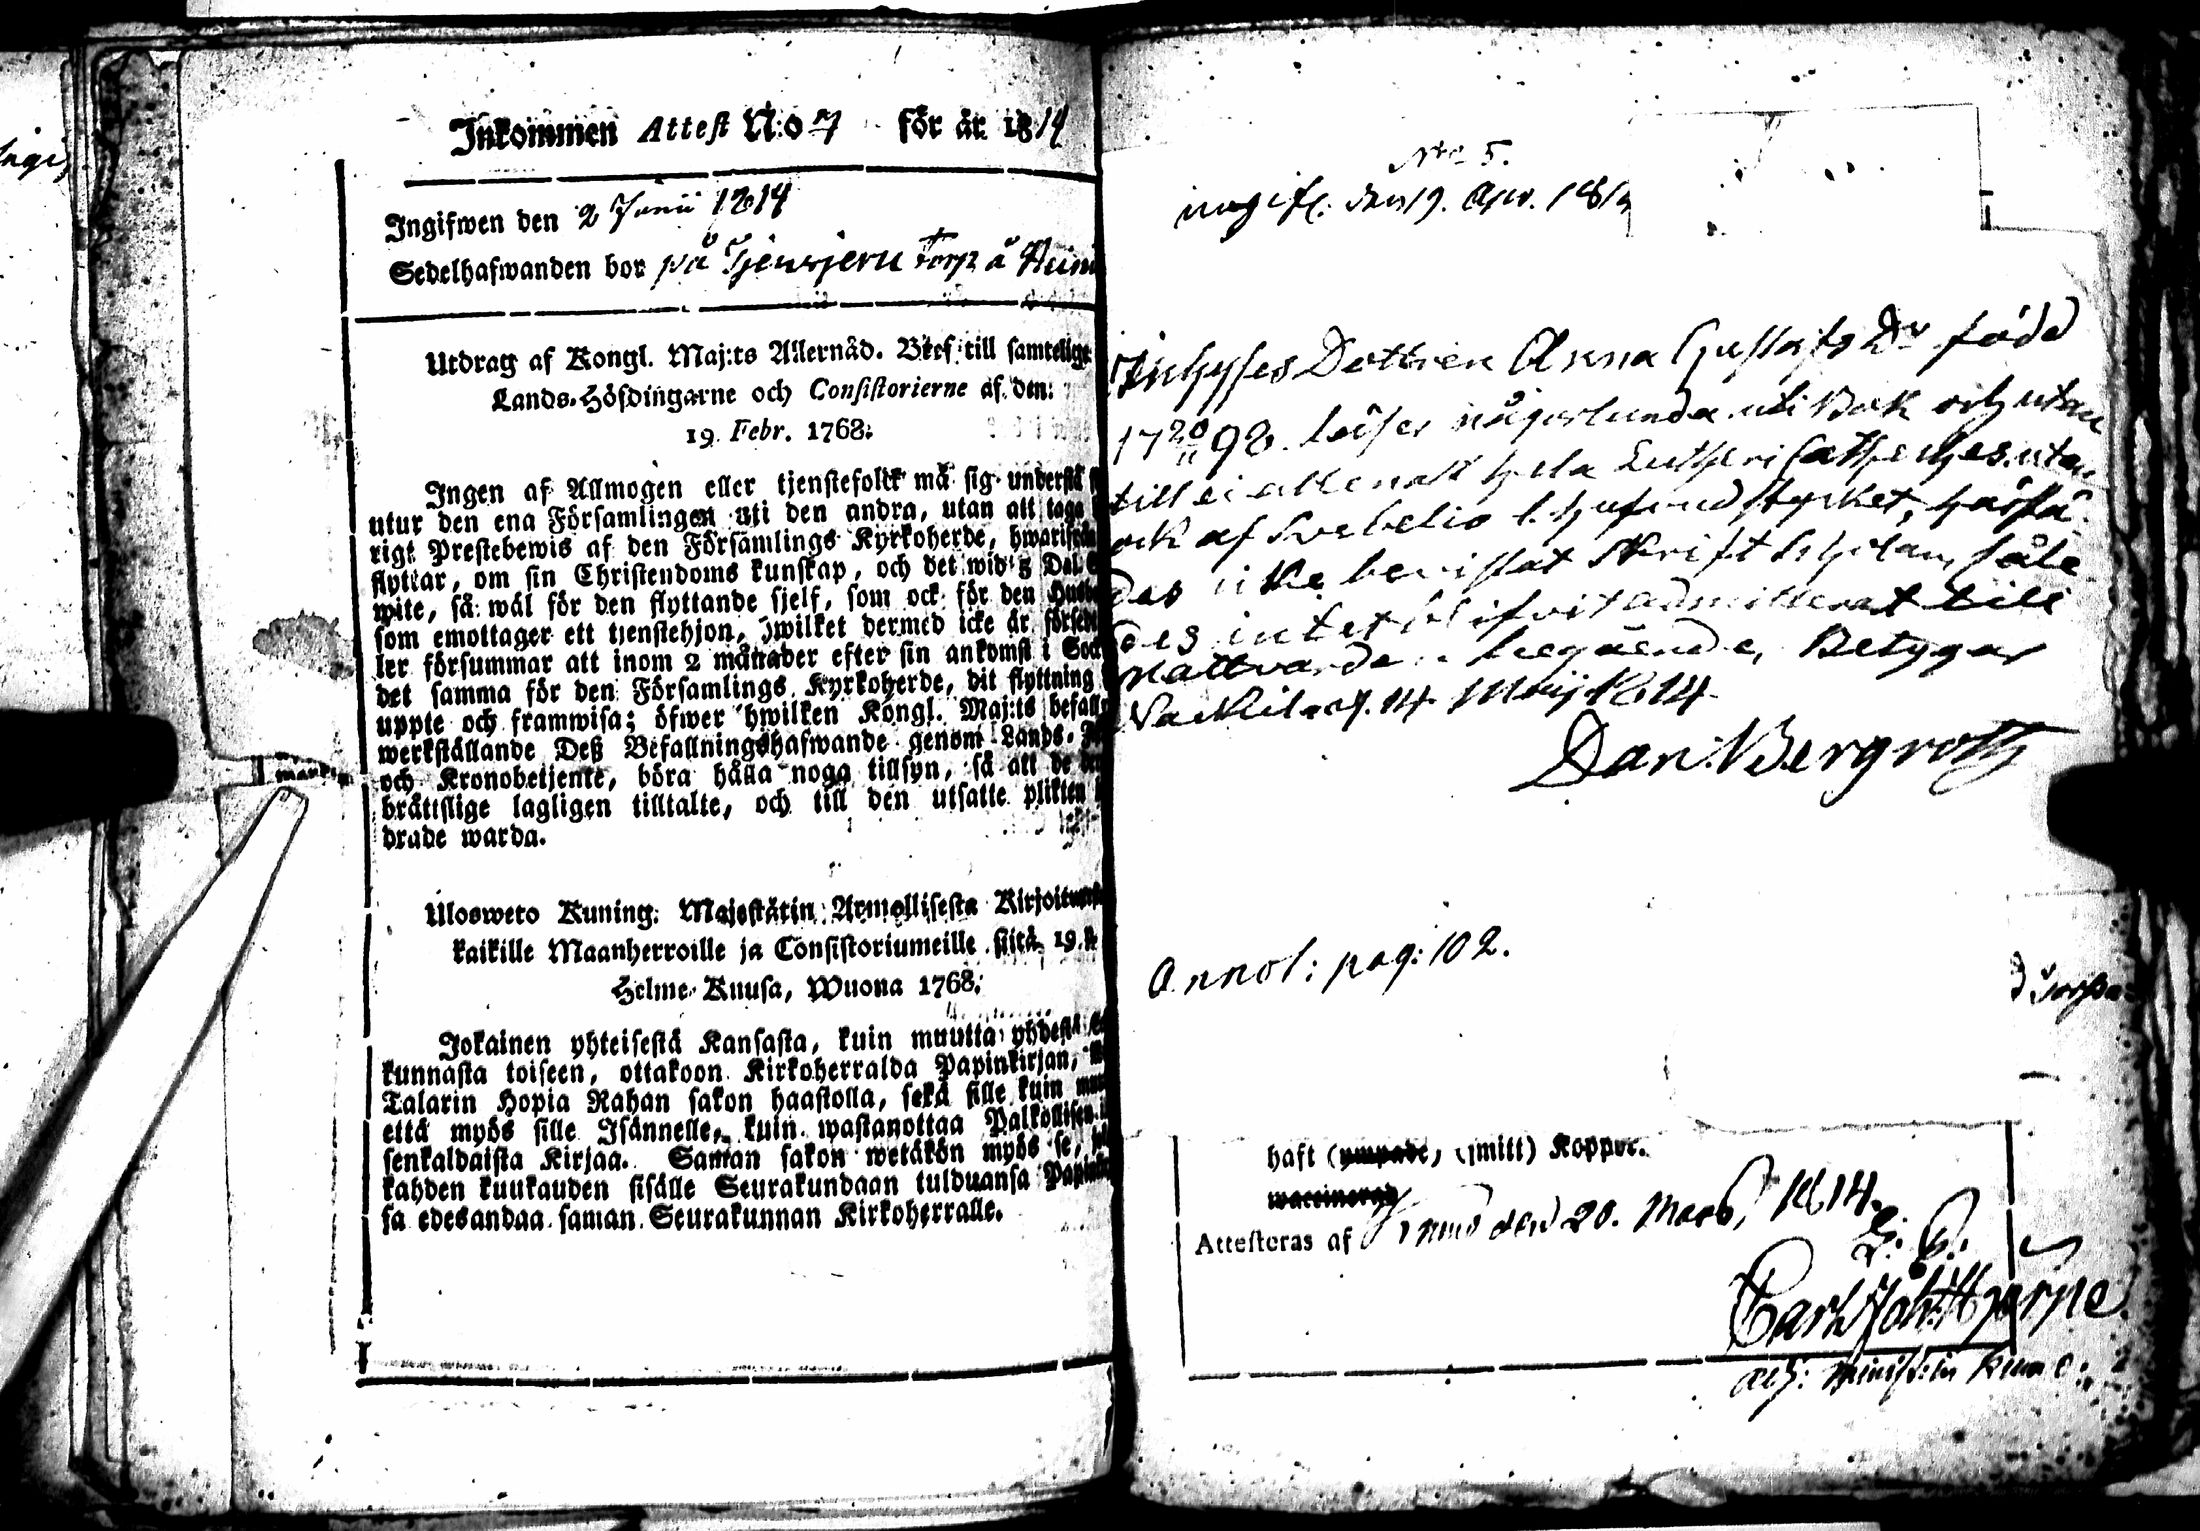 Inkommen Attest N:o 7 för år 1814
Ingifwen den 2 Junii 1814
Sedelhafwanden bor på Torp å
Utdrag af Kongl. Maj:ts Allernåd. Bref till samtelige
Lands-Höfdingarne och Consistorierne af den
19 Febr. 1768.
Ingen af Allmogen eller tjenstefolck må sig understå
utur den ena Församlingen uti den andra, utan att taga
rigt Prestebewis af den Församlings Kyrkoherde, hwarifrån
flyttar, om sin Christendoms kunskap, och det wid 3 Dal.
wite, så wäl för den flyttande sjelf, som ock för den
som emottager ett tjenstehjon, hwilket dermed icke är försedt
ler försummar att inom 2 månader efter sin ankomst i
det samma för den Församlings Kyrkoherde, dit flyttning
uppte och framwisa; öfwer hwilken Kongl. Maj:ts befall
werkställande Deß Befallningshafwande genom Lands-
och Kronobetjente, böra hålla noga tillsyn, så att de
bråttslige lagligen tilltalte, och till den utsatte plikten
drade warda.
Ulosweto Kuning. Majestätin Armollisesta Kirjoituxesta
kaikille Maanherroille ja Consistoriumeille siitä 19.
Helme-Kuusa, Wuona 1768.
Jokainen yhteisestä Kansasta, kuin muutta yhdestä
kunnasta toiseen, ottakoon Kirkoherralda Papinkirjan,
Talarin Hopia Rahan sakon haastolla, sekä sille kuin
että myös sille Isännelle, kuin wastanottaa Palkollisen
senkaldaista Kirjaa. Saman sakon wetäkön myös se,
kahden kuukauden sisälle Seurakundaan tulduansa
sa edesandaa saman Seurakunnan Kirkoherralle.
No 5.
ingifv. den 19. Apr. 181
Inhyses Dottren Anna Gustafs Dr född
17 20/11 98. läser någorlunda uti Bok och utan
till ei allenast hela Lutheri Catheches. utan
ock af Svebelio 1. hufvud stycket,
des icke bevistat Skrift Scholan, såle
des intet blifvit admitterat till
Nattvardens begående, Betygar
14 Maij 1814
Dan: Bergroth
Annot: pag: 102.
Torpa
haft (ympade, smitt) Koppor.
waccinerad
Attesteras af Kumo den 20. Mars 1814.
Carl Joh: Hjerpe